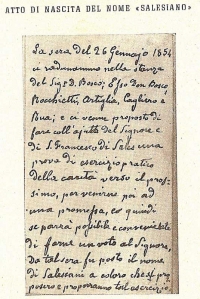 ATTO DI NASCITA DEL NOME «SALESIANO»
La sera del 26 Gennajo 1854
ci radunammo nella stanza
del Sig. D. Bosco; Esso Don Bosco
Rocchietti, Artiglia, Cagliero e
Rua; e ci venne proposto di
fare coll'ajuto del Signore e
di S. Francesco di Sales una
prova di esercizio pratico
della carità verso il pros-
simo, per venire poi ad
una promessa, e quindi
se parrà possibile e conveniente
di farne un voto al Signore.
Da tal sera fu posto il nome
di Salesiani a coloro che si pro
posero e proporranno tal esercizio.